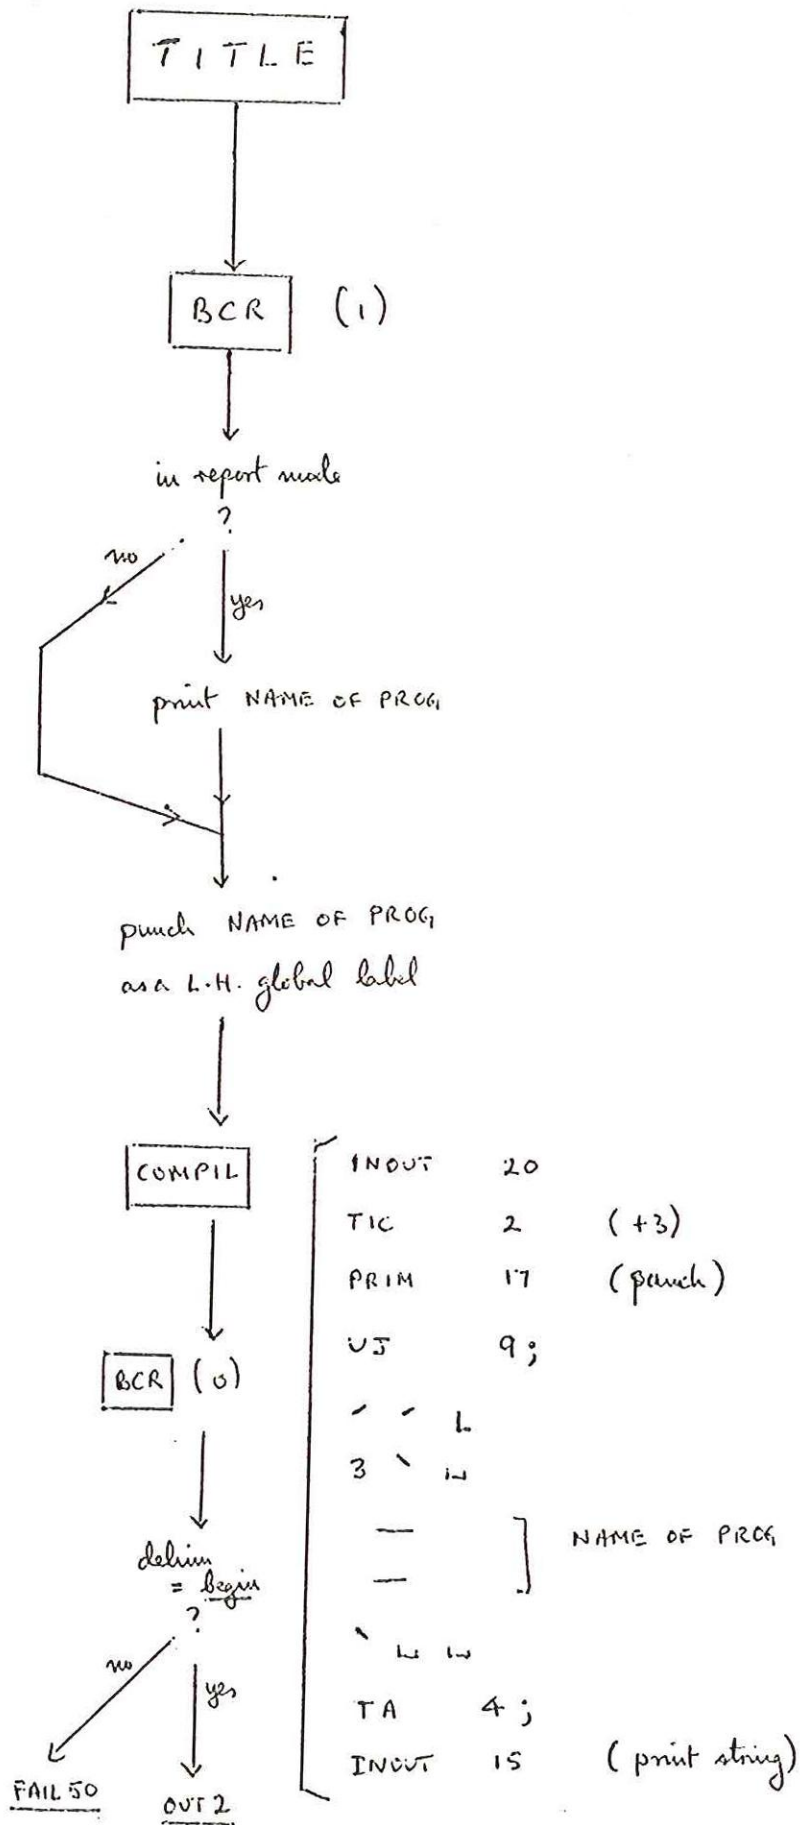 TITLE
BCR (1)
in report mode
?
no
yes
print NAME OF PROG
punch NAME OF PROG
as a L.H. global label
COMPIL
BCR (0)
delim
= begin
?
no
yes
FAIL 50
OUT 2
INOUT 20
TIC 2 (+3)
PRIM 17 (punch)
UJ 9;
´ ´ L
3 ` ␣
— ] NAME OF PROG
—
` ␣ ␣
TA 4;
INOUT 15 (print string)